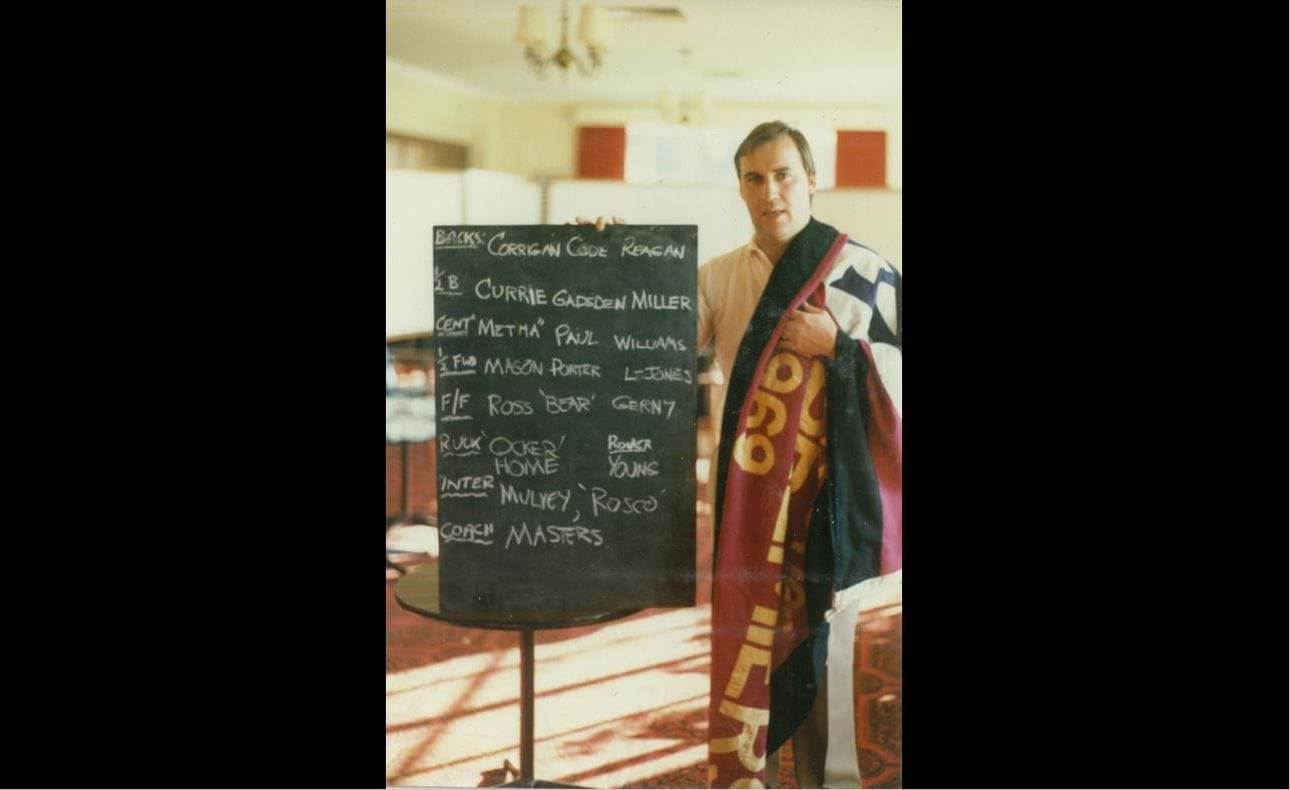 BACKS: CORRIGAN CODE REAGAN
½ B CURRIE GADSDEN MILLER
CENT "METHA" PAUL WILLIAMS
½ FWD MASON PORTER L-JONES
F/F ROSS 'BEAR' GERNY
RUCK 'OCKER' ROVER
HOME YOUNG
INTER MULVEY, 'ROSCO'
COACH MASTERS
1969